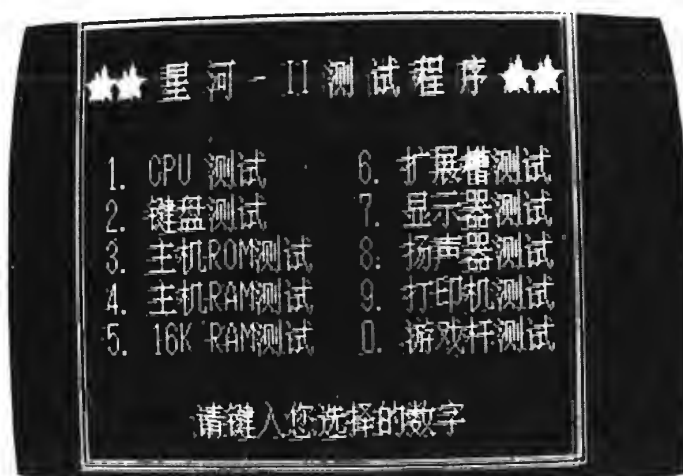 ★★ 星河-II测试程序 ★★
1. CPU 测试
2. 键盘测试
3. 主机ROM测试
4. 主机RAM测试
5. 16K RAM测试
6. 扩展槽测试
7. 显示器测试
8. 扬声器测试
9. 打印机测试
0. 游戏杆测试
请键入您选择的数字